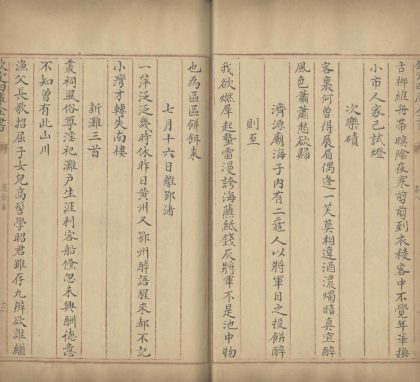 古柳維舟帶暝陰夜寒剪剪到衣稜客中不覺年華換
小市人家已試燈
次樂磧
客裏何曾得展眉偶逢一笑莫相違酒濃燭暗真宜醉
風色蕭蕭愁欲歸
濟源廟海子内有二黿人以將軍目之投餅醉
則至
我欲燃犀起蟄雷漫誇海蘸紙錢灰將軍不是池中物
也為區區餅餌來
七月十六日離鄂渚
一萍泛泛幾時休昨日黄州又鄂州醉語醒來都不記
小灣才轉失南樓
新灘三首
叢祠風俗尊淫祀灘户生涯利客船倏忽来興酬德意
不知曾有此山川
漁父長歌招屈子女兒高髻學昭君雖存九辨欲誰繼
欽定四庫全書